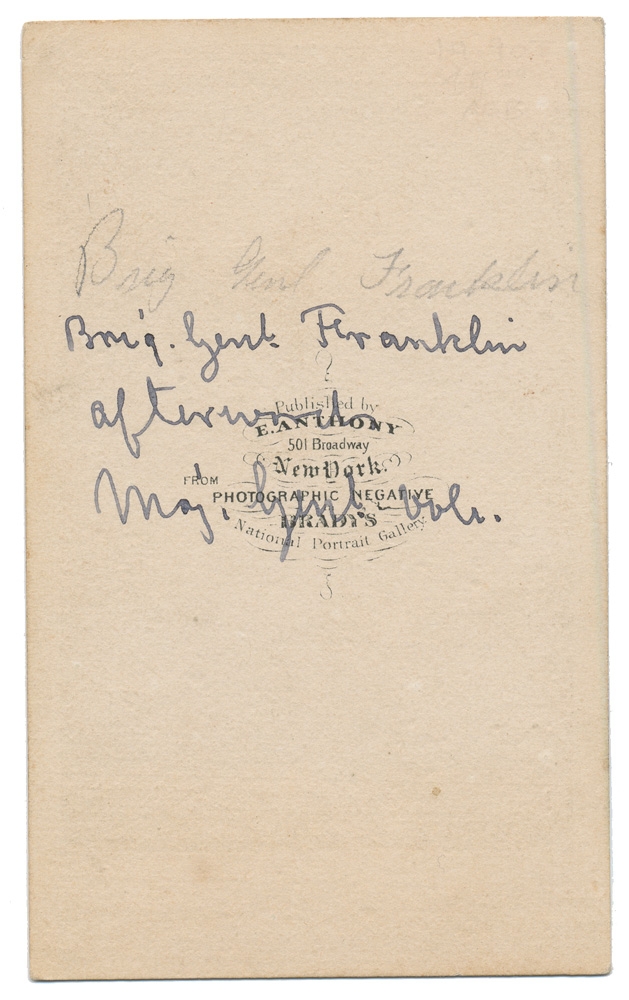 Brig Genl Franklin
Brig. Genl. Franklin
afterwards
Maj. Genl. Vols.
Published by
E. ANTHONY
501 Broadway
New York.
FROM
PHOTOGRAPHIC NEGATIVE
BRADY'S
National Portrait Gallery